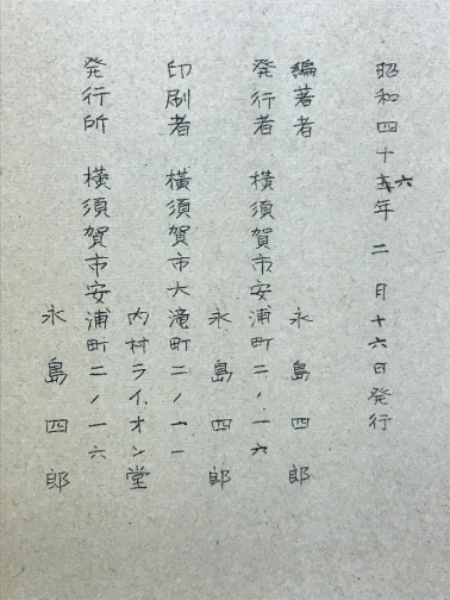 昭和四十六年 二月十六日発行
編著者 永島四郎
発行者 横須賀市安浦町二ノ一六
永島四郎
印刷者 横須賀市大滝町二ノ一一
内村ライオン堂
発行所 横須賀市安浦町二ノ一六
永島四郎